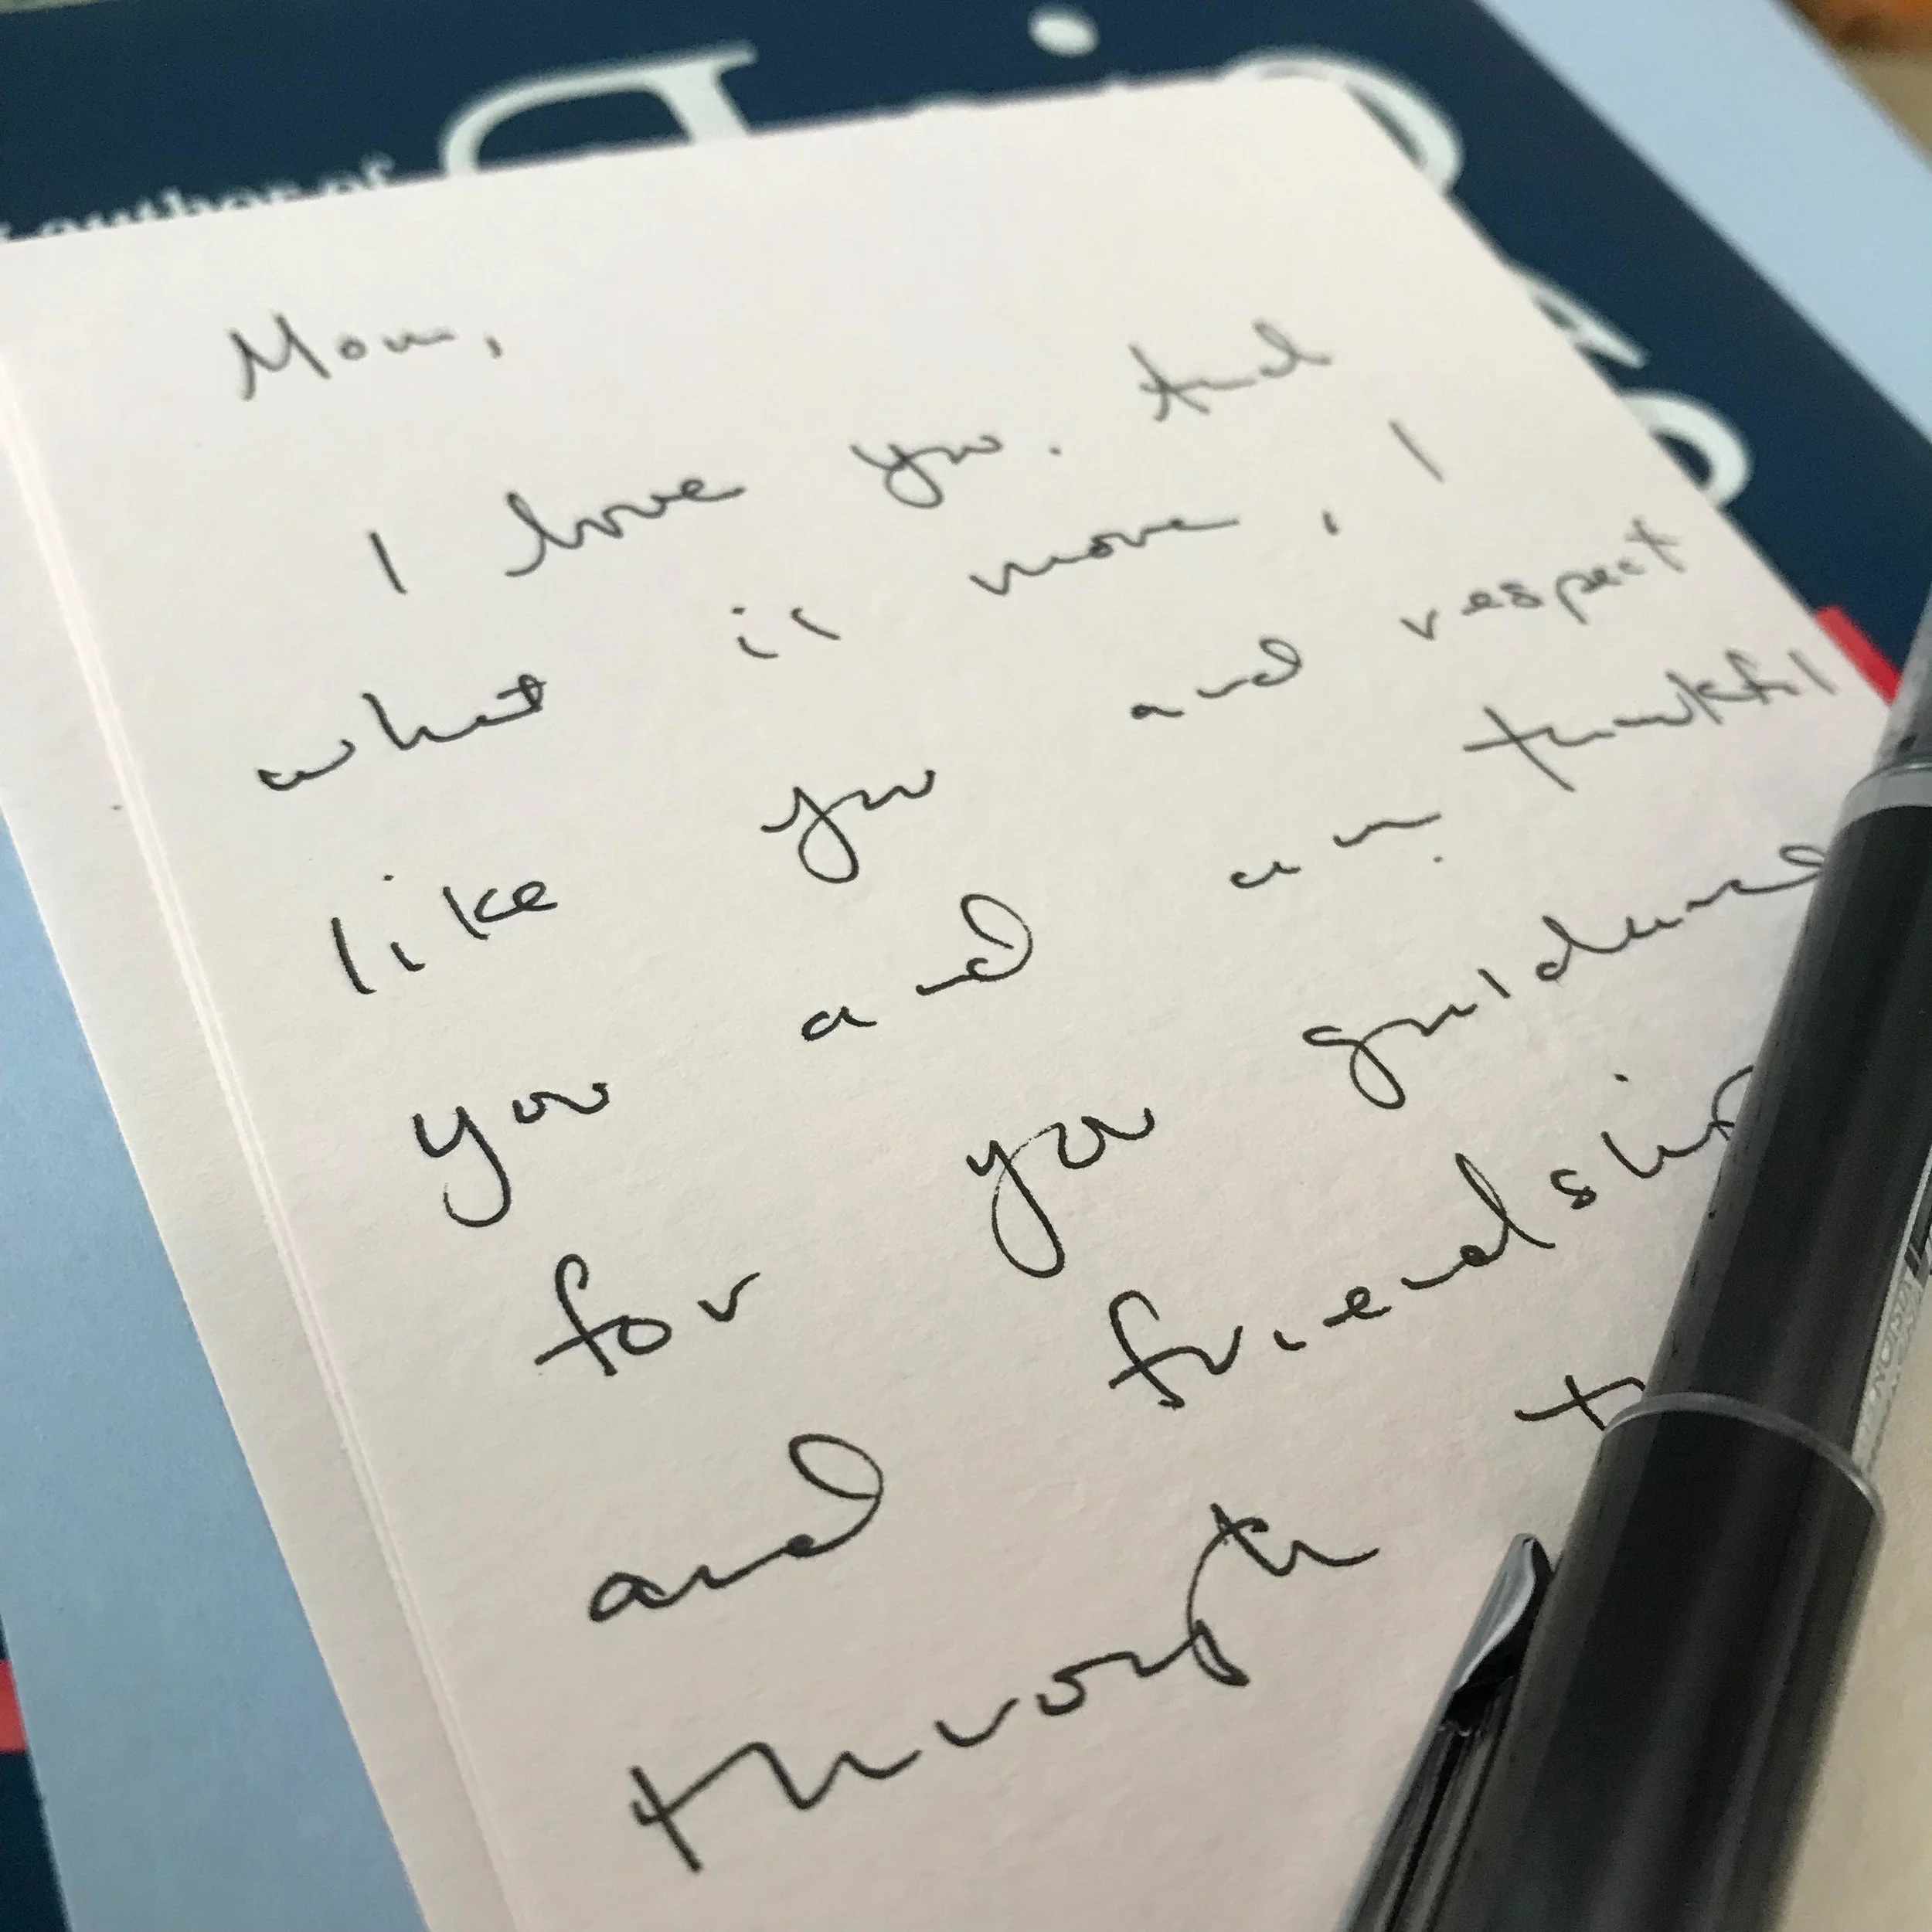 author of
Mom,
I love you. And
what is more, I
like you and respect
you and am thankful
for you guidance
and friendship
through